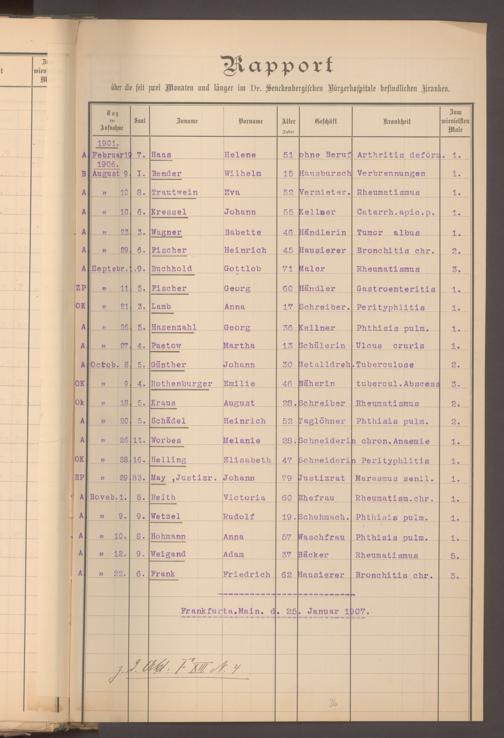 Rapport
über die seit zwei Monaten und länger im Dr. Senckenbergischen Bürgerhospitale befindlichen Kranken.
Tag der Aufnahme Saal Zuname Vorname Alter Jahre Geschäft Krankheit Zum wievielten Male
1901.
A Februar 19 7. Haas Helene 51 ohne Beruf Arthritis deform. 1.
1906.
B August 9. I. Bender Wilhelm 15 Hausbursch Verbrennungen 1.
A " 10 8. Trautwein Eva 52 Vermieter. Rheumatismus 1.
A " 6. Kressel Johann 55 Kellner Catarrh.apic.p. 1.
A " 23. 3. Wagner Babette 46 Händlerin Tumor albus 1.
A " 29. 6. Fischer Heinrich 45 Hausierer Bronchitis chr. 2.
A Septebr.1. 9. Buchhold Gottlob 71 Maler Rheumatismus 3.
ZP " 11. 5. Fischer Georg 60 Händler Gastroenteritis 1.
OK " 21. 3. Lamb Anna 17 Schreiber. Perityphlitis 1.
A " 26. 5. Hasenzahl Georg 36 Kellner Phthisis pulm. 1.
A " 27. 4. Paetow Martha 13 Schülerin Ulcus cruris 1.
A Octob. 8. 5. Günther Johann 30 Metalldreh. Tuberculose 2.
OK " 9. 4. Rothenburger Emilie 46 Näherin tubercul.Abscess 3.
Ok " 18. 5. Kraus August 28. Schreiber Rheumatismus 2.
A " 20. 5. Schädel Heinrich 52 Taglöhner Phthisis pulm. 2.
A " 26. 11. Worbes Melanie 28. Schneiderin chron.Anaemie 1.
OK " 28. 16. Helling Elisabeth 47 Schneiderin Perityphlitis 1.
" 29. 83. May ,Justizr. Johann 79 Justizrat Marasmus senil. 1.
A Novemb.1. 8. Heith Victoria 60 Ehefrau Rheumatism.chr. 1.
A " 9. 9. Wetzel Rudolf 19. Schuhmach. Phthisis pulm. 1.
A " 10. 8. Hohmann Anna 57 Waschfrau Phthisis pulm. 1.
A " 12. 9. Weigand Adam 37 Bäcker Rheumatismus 5.
A " 22. 6. Frank Friedrich 62 Hausierer Bronchitis chr. 3.
Frankfurta.Main. d. 25. Januar 1907.